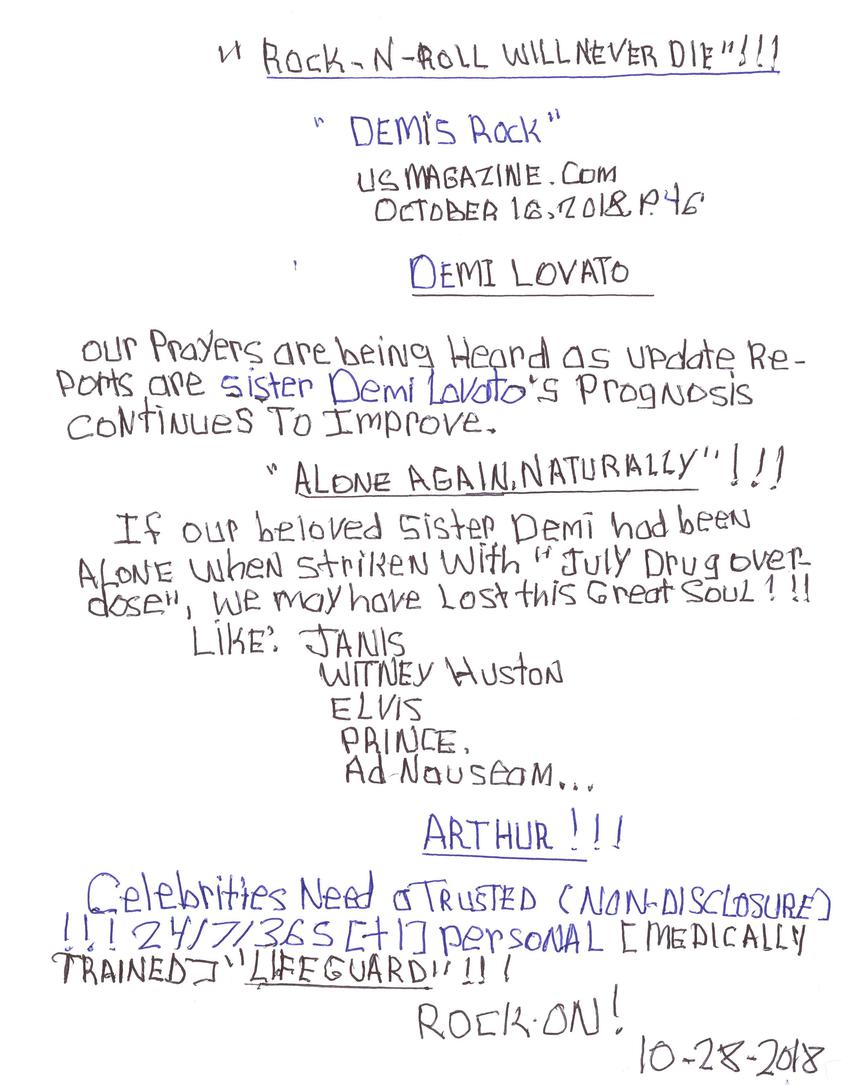 " ROCK-N-ROLL WILL NEVER DIE"!!!
" DEMI'S ROCK"
USMAGAZINE.COM
OCTOBER 16, 2018 P.46
DEMI LOVATO
Our Prayers are being Heard as update Re-
Ports are sister Demi Lovato's Prognosis
CONTINUES To Improve.
"ALONE AGAIN, NATURALLY"!!!
If our beloved Sister Demi had been
ALONE when striken with "July Drug over-
dose", we may have Lost this Great Soul!!!
LIKE: JANIS
WITNEY HUSTON
ELVIS
PRINCE,
Ad Nauseam...
ARTHUR!!!
Celebrities Need a TRUSTED (NON-DISCLOSURE)
!!! 24/7/365 [+1] personal [MEDICALLY
TRAINED] "LIFEGUARD"!!!
ROCK-ON!
10-28-2018